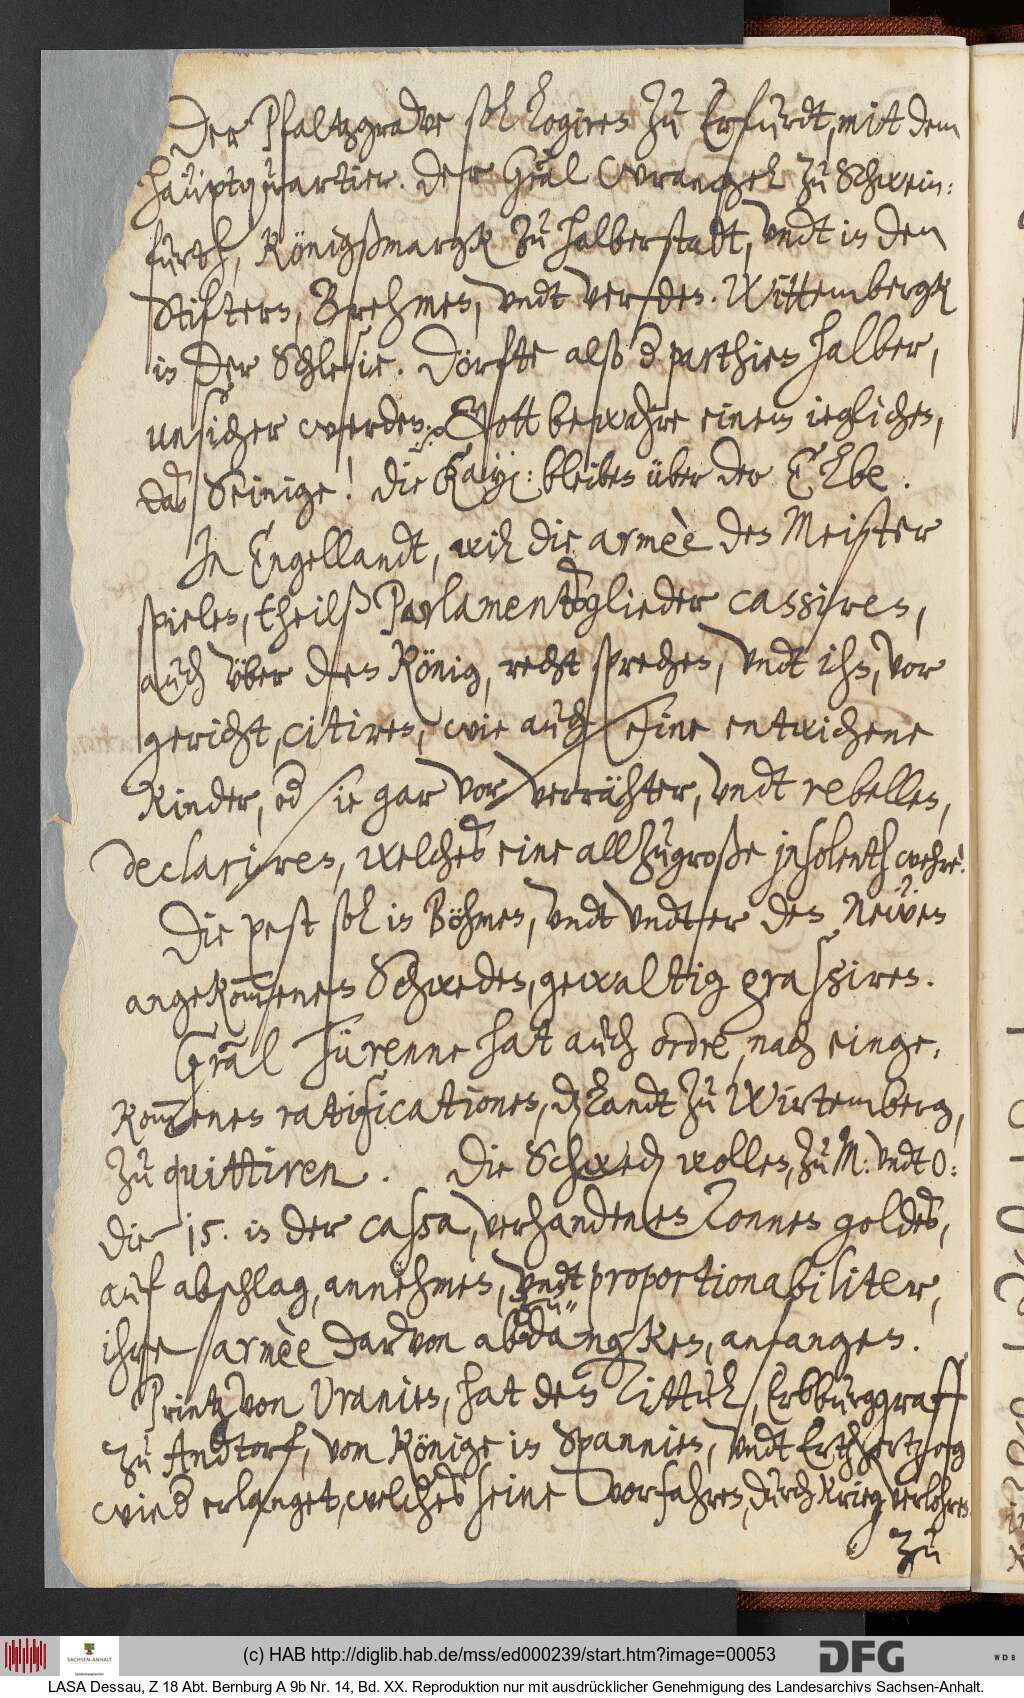 Der Pfaltzgrave sol logiren zu Erfurdt, mit dem
hauptquartier. Der Gräal Wrangel zu Schwein:
furth, Königßmargk zu halberstadt, undt in den
Stiftern, Brehmen, undt Verden. Wittembergk
in der Schlesie. Dörfte also die parthien halber,
unsicher werden. Gott bewahre einem ieglichen,
das Seinige! Die Kayß: bleiben über der Elbe.
In Engellandt, will die armèe den Meister
spielen, theilß Parlamentsglieder cassiren,
auch über den König, recht sprechen, undt ihn, vor
gericht, citiren, wie auch seine entwichene
Kinder, od sie gar vor verrähter, undt rebellen,
declariren, welches eine allzugroße insolentz wehre.
Die pest sol in Böhmen, undt undter den Neẅen
angekom̅enen Schweden, gewaltig grassiren.
Gräl Türenne hat auch ordre, nach einge:
kom̅enen ratificationen, dz Landt zu Wirtemberg,
zu quittiren. Die Schwed wollen, zu M: undt O:
die 15. in der cassa, verhandenen Tonnen goldes,
auf abschlag, annehmen, undt proportionabiliter,
ihre armèe darvon abzudängken, anfangen.
Printz von Uranien, hat den Tittul, Erbburggraff
zu Andtorf, vom Könige in Spannien, undt Ertzhertzog
wied erlanget, welches seine vorfahren, durch krieg verlohren
zu
(c) HAB http://diglib.hab.de/mss/ed000239/start.htm?image=00053
SACHSEN-ANHALT
DFG
WDB
LASA Dessau, Z 18 Abt. Bernburg A 9b Nr. 14, Bd. XX. Reproduktion nur mit ausdrücklicher Genehmigung des Landesarchivs Sachsen-Anhalt.